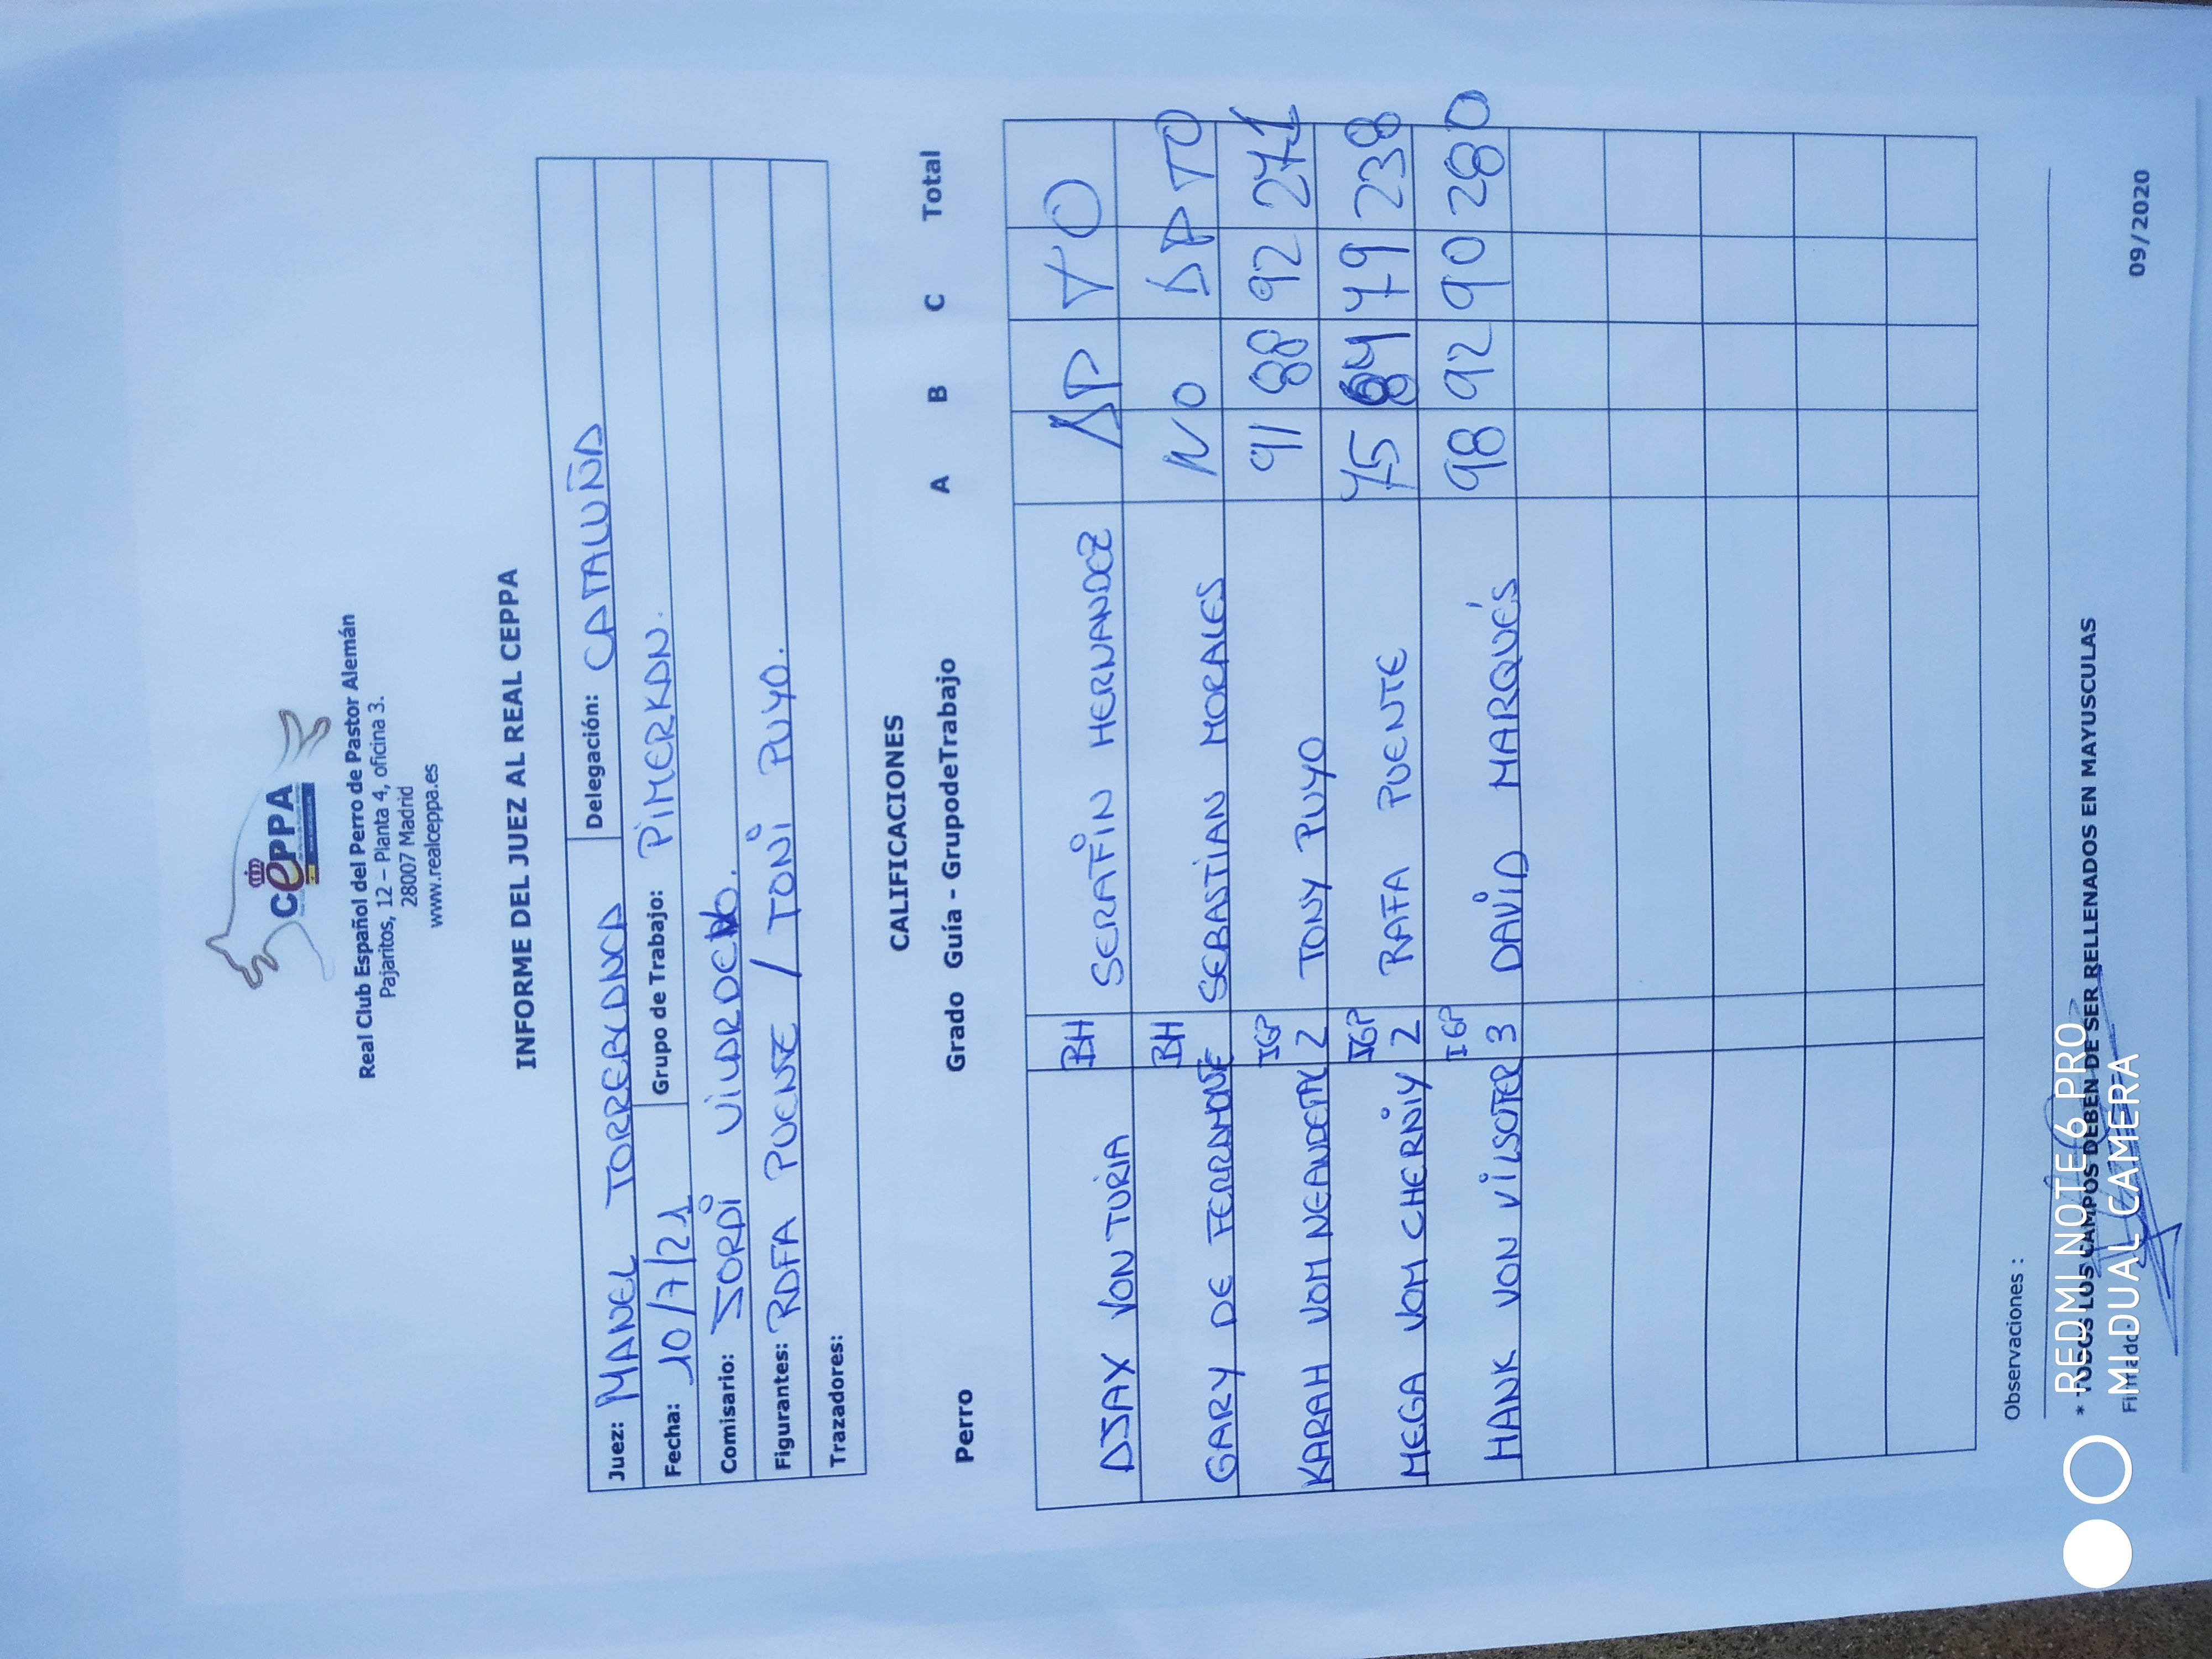 CEPPA
Real Club Español del Perro de Pastor Alemán
Pajaritos, 12 – Planta 4, oficina 3.
28007 Madrid
www.realceppa.es
INFORME DEL JUEZ AL REAL CEPPA
Juez: MANEL TORREBLANCA Delegación: CATALUÑA
Fecha: 10/7/21 Grupo de Trabajo: PIMERKAN.
Comisario: JORDI
Figurantes: RAFA PUENTE / TONI PUYO.
Trazadores:
CALIFICACIONES
Perro Grado Guía - GrupodeTrabajo A B C Total
AJAX VON TURIA BH SERAFIN HERNANDEZ APTO
GARY DE BH SEBASTIAN MORALES NO APTO
KARAH VOM NEANDERTAL IGP 2 TONY PUYO 91 88 92 271
MEGA VOM CHERNIY IGP 2 RAFA PUENTE 75 84 79 238
HANK VON VILSOTER IGP 3 DAVID MARQUÉS 98 92 90 280
Observaciones :
* TODOS LOS CAMPOS DEBEN DE SER RELLENADOS EN MAYUSCULAS
Firmado:
09/2020
REDMI NOTE 6 PRO
MI DUAL CAMERA